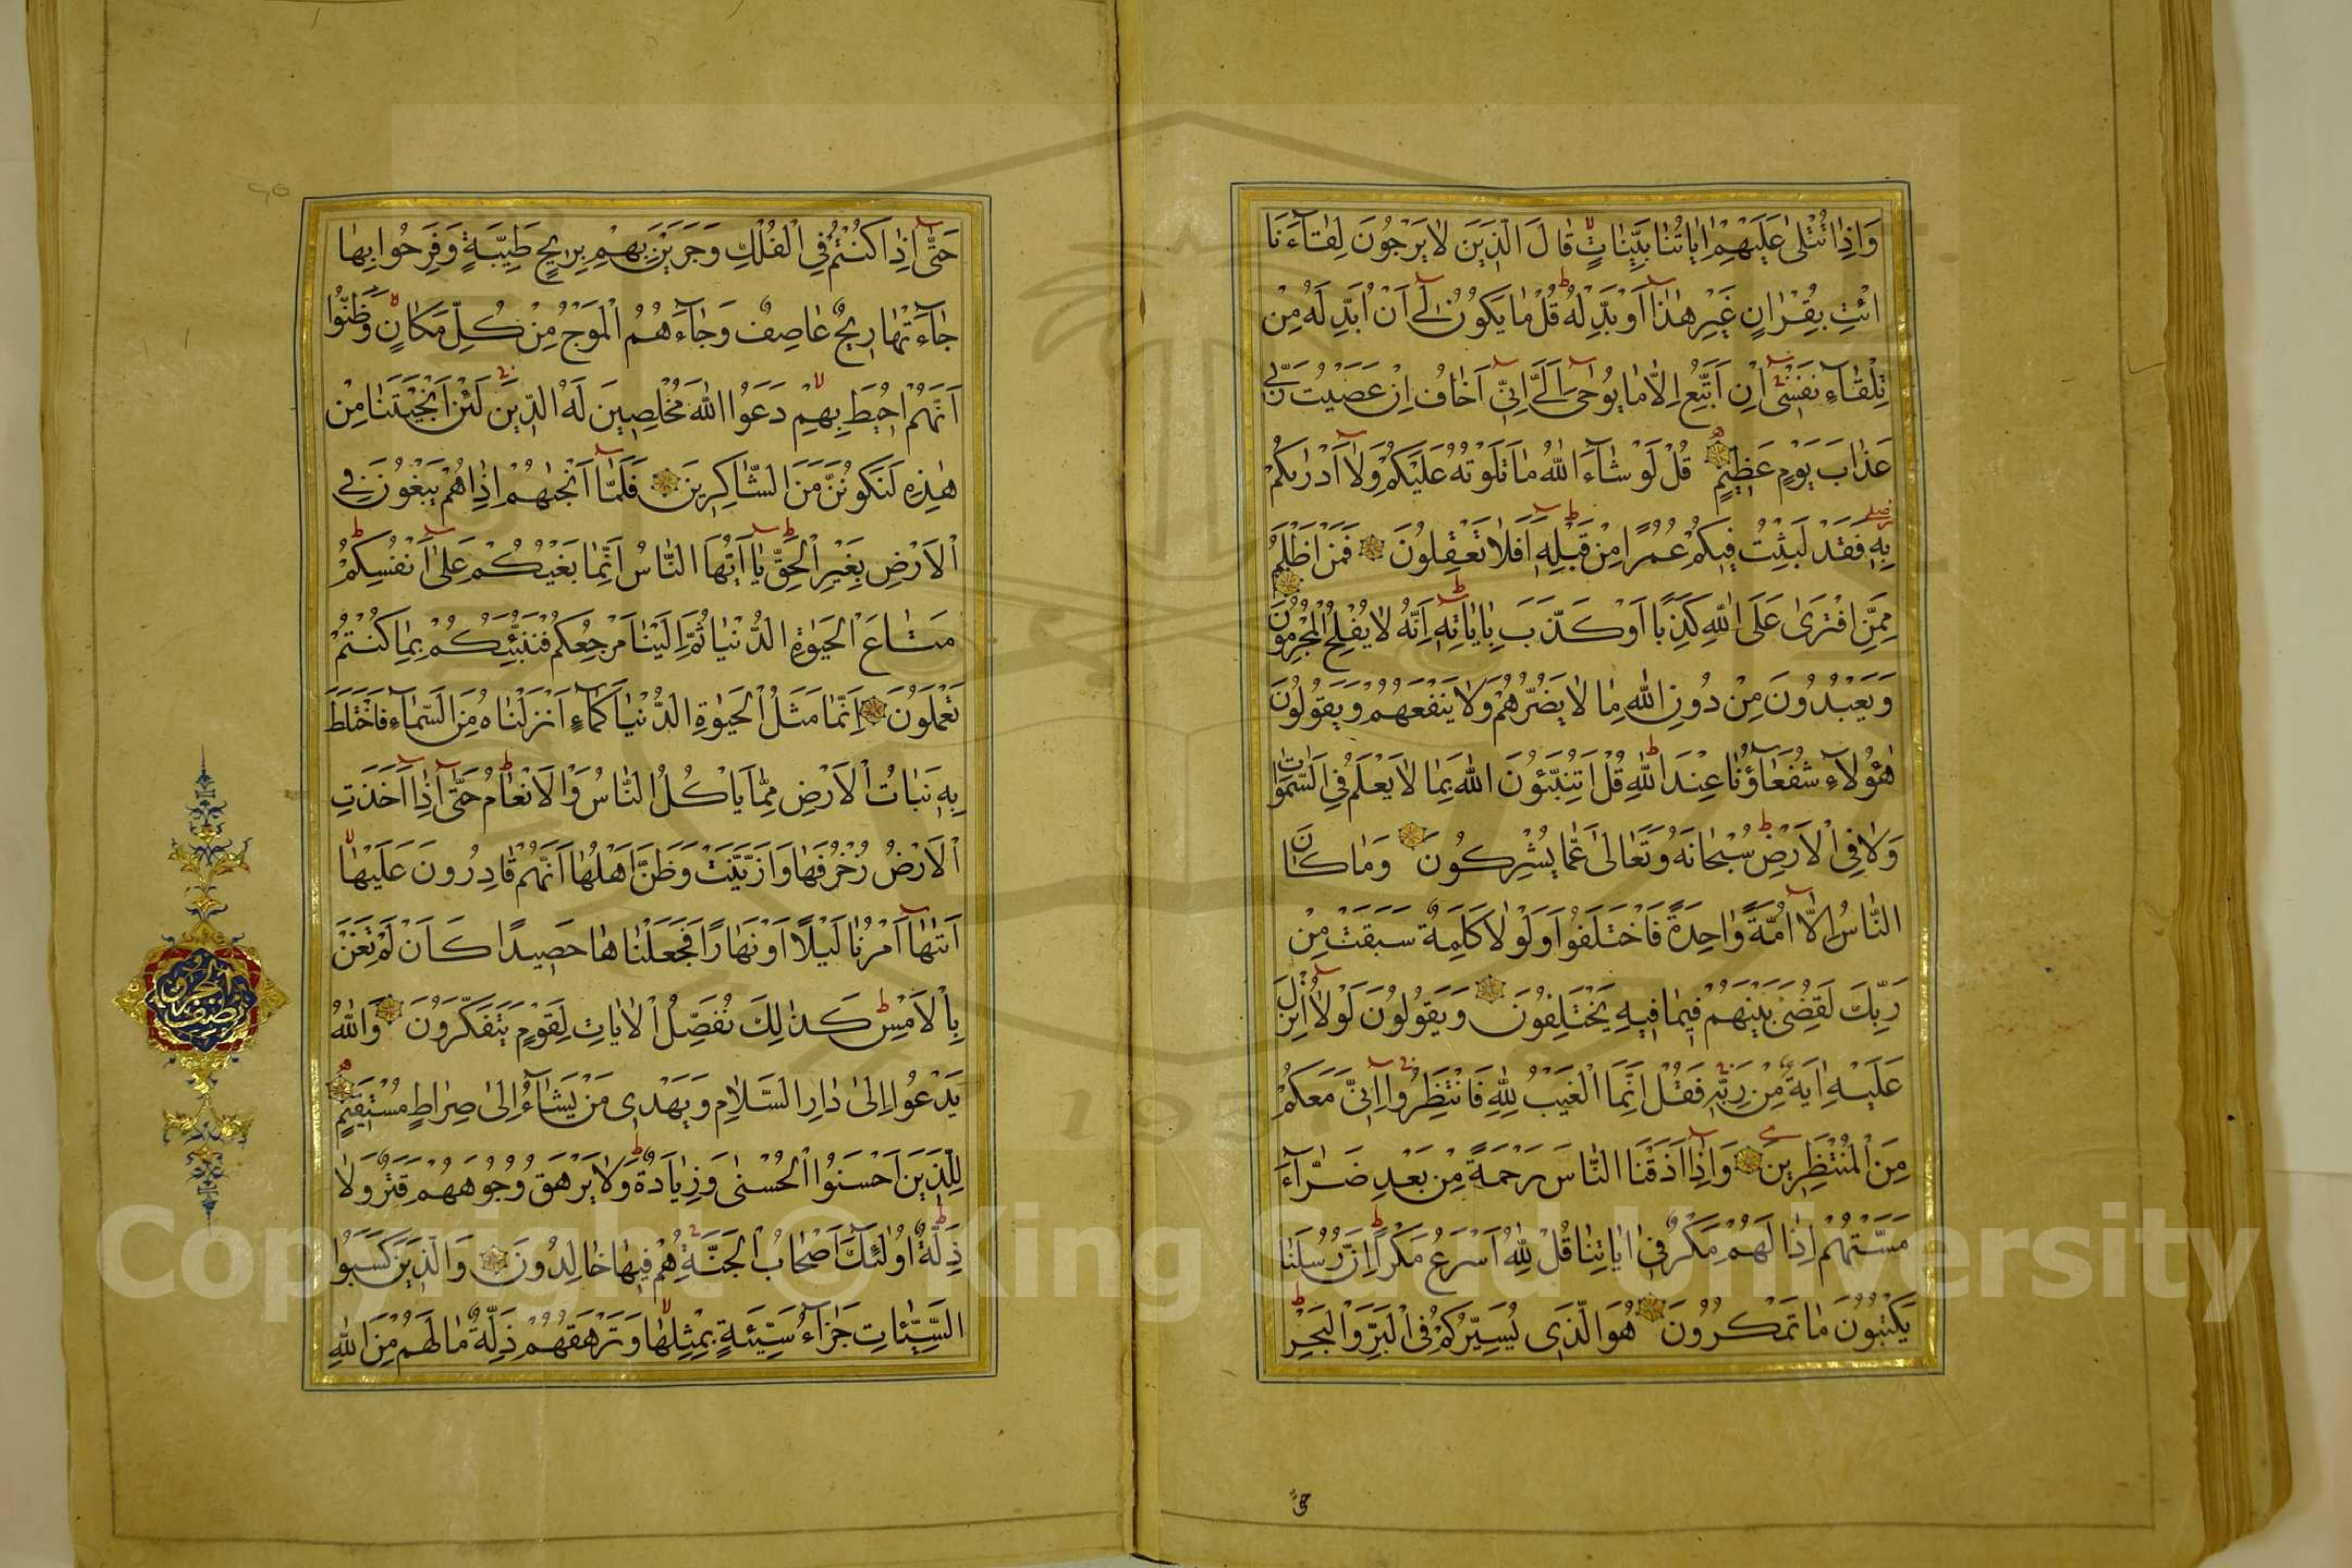 وَاِذَا تُتْلٰى عَلَيْهِمْ اٰيَاتُنَا بَيِّنَاتٍ قَالَ الَّذِينَ لَا يَرْجُونَ لِقَآءَنَا
ائْتِ بِقُرْاٰنٍ غَيْرِ هٰذَٓا اَوْ بَدِّلْهُ قُلْ مَا يَكُونُ لِٓى اَنْ اُبَدِّلَهُ مِنْ
تِلْقَآءِ نَفْسِٓى اِنْ اَتَّبِعُ اِلَّا مَا يُوحٰٓى اِلَىَّ اِنِّٓى اَخَافُ اِنْ عَصَيْتُ رَبِّى
عَذَابَ يَوْمٍ عَظِيمٍ قُلْ لَوْ شَآءَ اللّٰهُ مَا تَلَوْتُهُ عَلَيْكُمْ وَلَٓا اَدْرٰيكُمْ
بِهِ فَقَدْ لَبِثْتُ فِيكُمْ عُمُرًا مِنْ قَبْلِهِ اَفَلَا تَعْقِلُونَ فَمَنْ اَظْلَمُ
مِمَّنِ افْتَرٰى عَلَى اللّٰهِ كَذِبًا اَوْ كَذَّبَ بِاٰيَاتِهِ اِنَّهُ لَا يُفْلِحُ الْمُجْرِمُونَ
وَيَعْبُدُونَ مِنْ دُونِ اللّٰهِ مَا لَا يَضُرُّهُمْ وَلَا يَنْفَعُهُمْ وَيَقُولُونَ
هٰٓؤُلَآءِ شُفَعَآؤُنَا عِنْدَ اللّٰهِ قُلْ اَتُنَبِّئُونَ اللّٰهَ بِمَا لَا يَعْلَمُ فِى السَّمٰوَاتِ
وَلَا فِى الْاَرْضِ سُبْحَانَهُ وَتَعَالٰى عَمَّا يُشْرِكُونَ وَمَا كَانَ
النَّاسُ اِلَّٓا اُمَّةً وَاحِدَةً فَاخْتَلَفُوا وَلَوْلَا كَلِمَةٌ سَبَقَتْ مِنْ
رَبِّكَ لَقُضِىَ بَيْنَهُمْ فِيمَا فِيهِ يَخْتَلِفُونَ وَيَقُولُونَ لَوْلَٓا اُنْزِلَ
عَلَيْهِ اٰيَةٌ مِنْ رَبِّهِ فَقُلْ اِنَّمَا الْغَيْبُ لِلّٰهِ فَانْتَظِرُوا اِنِّى مَعَكُمْ
مِنَ الْمُنْتَظِرِينَ وَاِذَٓا اَذَقْنَا النَّاسَ رَحْمَةً مِنْ بَعْدِ ضَرَّآءَ
مَسَّتْهُمْ اِذَا لَهُمْ مَكْرٌ فِٓى اٰيَاتِنَا قُلِ اللّٰهُ اَسْرَعُ مَكْرًا اِنَّ رُسُلَنَا
يَكْتُبُونَ مَا تَمْكُرُونَ هُوَ الَّذِى يُسَيِّرُكُمْ فِى الْبَرِّ وَالْبَحْرِ
حتى
حَتّٰٓى اِذَا كُنْتُمْ فِى الْفُلْكِ وَجَرَيْنَ بِهِمْ بِرِيحٍ طَيِّبَةٍ وَفَرِحُوا بِهَا
جَآءَتْهَا رِيحٌ عَاصِفٌ وَجَآءَهُمُ الْمَوْجُ مِنْ كُلِّ مَكَانٍ وَظَنُّٓوا
اَنَّهُمْ اُحِيطَ بِهِمْ دَعَوُا اللّٰهَ مُخْلِصِينَ لَهُ الدِّينَ لَئِنْ اَنْجَيْتَنَا مِنْ
هٰذِهِ لَنَكُونَنَّ مِنَ الشَّاكِرِينَ فَلَمَّٓا اَنْجٰيهُمْ اِذَا هُمْ يَبْغُونَ فِى
الْاَرْضِ بِغَيْرِ الْحَقِّ يَٓا اَيُّهَا النَّاسُ اِنَّمَا بَغْيُكُمْ عَلٰٓى اَنْفُسِكُمْ
مَتَاعَ الْحَيٰوةِ الدُّنْيَا ثُمَّ اِلَيْنَا مَرْجِعُكُمْ فَنُنَبِّئُكُمْ بِمَا كُنْتُمْ
تَعْمَلُونَ اِنَّمَا مَثَلُ الْحَيٰوةِ الدُّنْيَا كَمَآءٍ اَنْزَلْنَاهُ مِنَ السَّمَآءِ فَاخْتَلَطَ
بِهِ نَبَاتُ الْاَرْضِ مِمَّا يَاْكُلُ النَّاسُ وَالْاَنْعَامُ حَتّٰٓى اِذَٓا اَخَذَتِ
الْاَرْضُ زُخْرُفَهَا وَازَّيَّنَتْ وَظَنَّ اَهْلُهَٓا اَنَّهُمْ قَادِرُونَ عَلَيْهَا
اَتٰيهَٓا اَمْرُنَا لَيْلًا اَوْ نَهَارًا فَجَعَلْنَاهَا حَصِيدًا كَاَنْ لَمْ تَغْنَ
بِالْاَمْسِ كَذٰلِكَ نُفَصِّلُ الْاٰيَاتِ لِقَوْمٍ يَتَفَكَّرُونَ وَاللّٰهُ
يَدْعُوا اِلٰى دَارِ السَّلَامِ وَيَهْدِى مَنْ يَشَآءُ اِلٰى صِرَاطٍ مُسْتَقِيمٍ
لِلَّذِينَ اَحْسَنُوا الْحُسْنٰى وَزِيَادَةٌ وَلَا يَرْهَقُ وُجُوهَهُمْ قَتَرٌ وَلَا
ذِلَّةٌ اُولٰٓئِكَ اَصْحَابُ الْجَنَّةِ هُمْ فِيهَا خَالِدُونَ وَالَّذِينَ كَسَبُوا
السَّيِّئَاتِ جَزَآءُ سَيِّئَةٍ بِمِثْلِهَا وَتَرْهَقُهُمْ ذِلَّةٌ مَا لَهُمْ مِنَ اللّٰهِ
Copyright © King Saud University